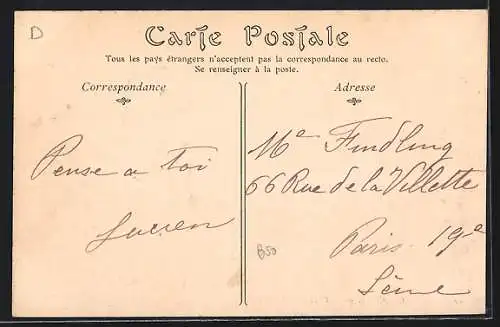 D
Carte Postale
Tous les pays étrangers n'acceptent pas la correspondance au recto.
Se renseigner à la poste.
Correspondance
Pense a toi
Lucien
Adresse
Me Findling
66 Rue de la Villette
Paris 19e
Seine
B50